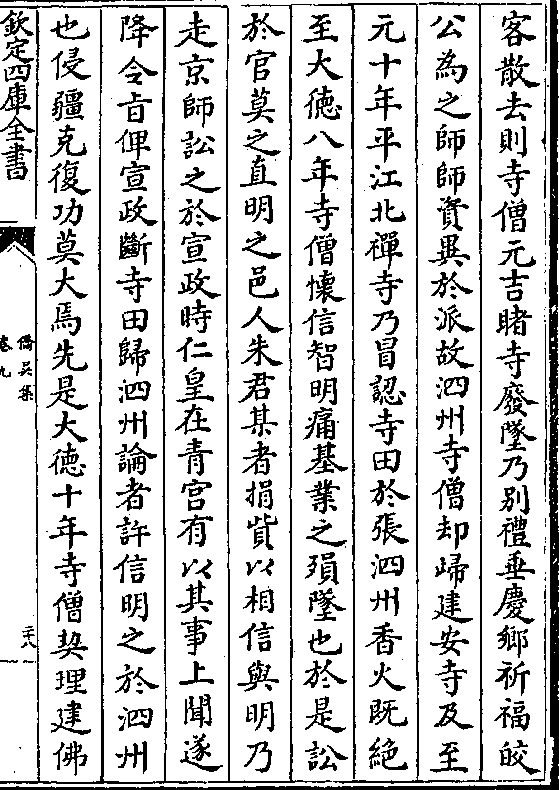 客散去則寺僧元吉睹寺廢墜乃别禮垂慶鄉祈福皎
公為之師師資異於派故泗州寺僧却歸建安寺及至
元十年平江北禪寺乃冒認寺田於張泗州香火既絶
至大徳八年寺僧懐信智明痛基業之殞墜也於是訟
於官莫之直明之邑人朱君某者捐貲以相信與明乃
走京師訟之於宣政時仁皇在青宫有以其事上聞遂
降令㫖俾宣政斷寺田歸泗州論者許信明之於泗州
也侵疆克復功莫大焉先是大徳十年寺僧契理建佛
欽定四庫全書
僑吳集
卷九
二十八